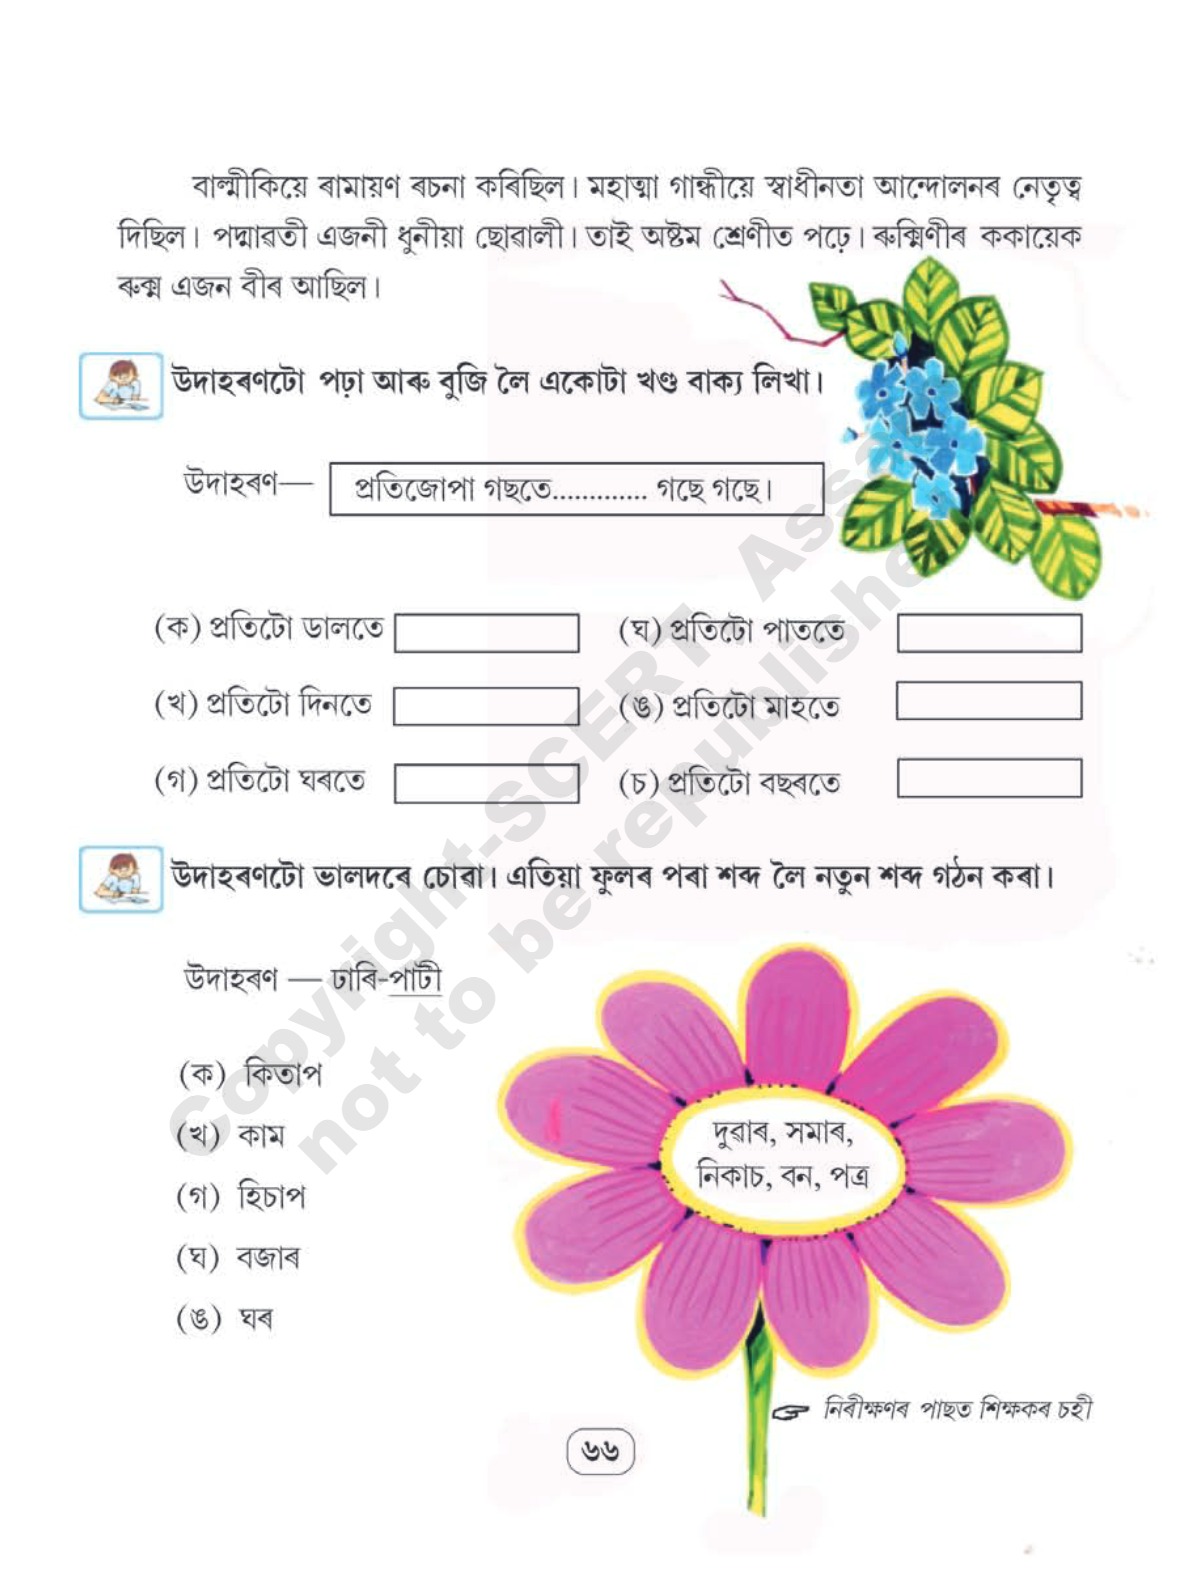 বাল্মীকিয়ে ৰামায়ণ ৰচনা কৰিছিল। মহাত্মা গান্ধীয়ে স্বাধীনতা আন্দোলনৰ নেতৃত্ব
দিছিল। পদ্মাৱতী এজনী ধুনীয়া ছোৱালী। তাই অষ্টম শ্ৰেণীত পঢ়ে। ৰুক্মিণীৰ ককায়েক
ৰুক্ম এজন বীৰ আছিল।
উদাহৰণটো পঢ়া আৰু বুজি লৈ একোটা খণ্ড বাক্য লিখা।
উদাহৰণ— প্ৰতিজোপা গছতে............. গছে গছে।
(ক) প্ৰতিটো ডালতে (ঘ) প্ৰতিটো পাততে
(খ) প্ৰতিটো দিনতে (ঙ) প্ৰতিটো মাহতে
(গ) প্ৰতিটো ঘৰতে (চ) প্ৰতিটো বছৰতে
উদাহৰণটো ভালদৰে চোৱা। এতিয়া ফুলৰ পৰা শব্দ লৈ নতুন শব্দ গঠন কৰা।
উদাহৰণ — ঢাৰি-পাটী
(ক) কিতাপ
(খ) কাম
(গ) হিচাপ
(ঘ) বজাৰ
(ঙ) ঘৰ
দুৱাৰ, সমাৰ,
নিকাচ, বন, পত্ৰ
নিৰীক্ষণৰ পাছত শিক্ষকৰ চহী
৬৬
Copyright-SCERT Assa
not to be republishe